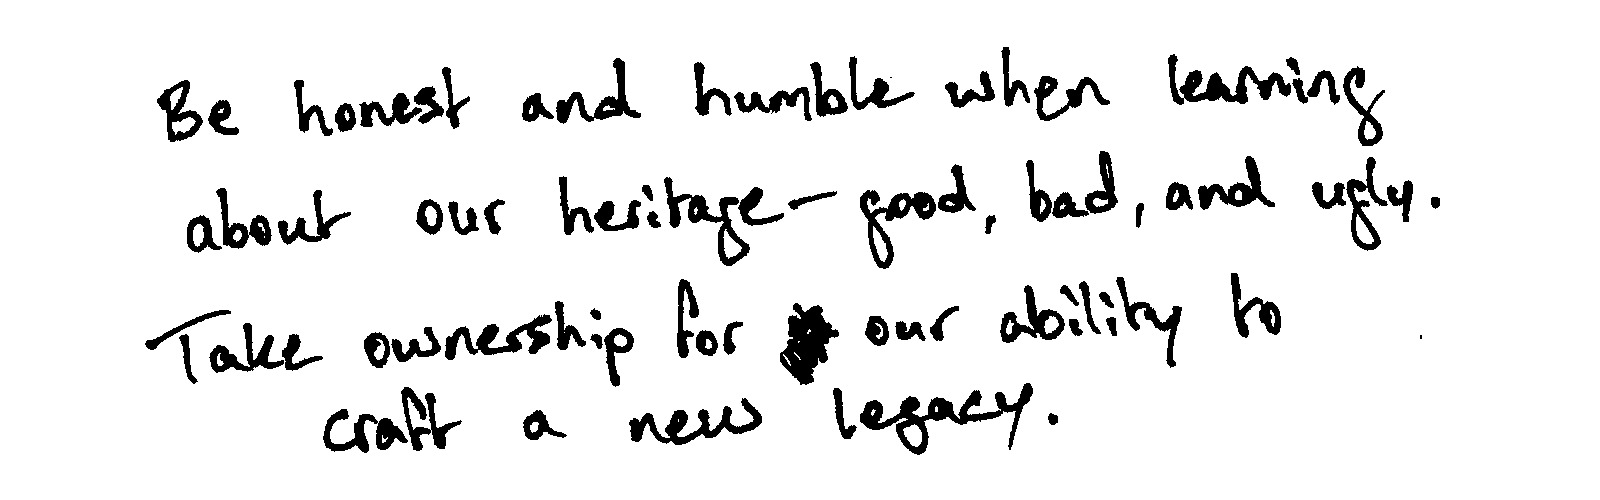 Be honest and humble when learning
about our heritage - good, bad, and ugly.
Take ownership for our ability to
craft a new legacy.